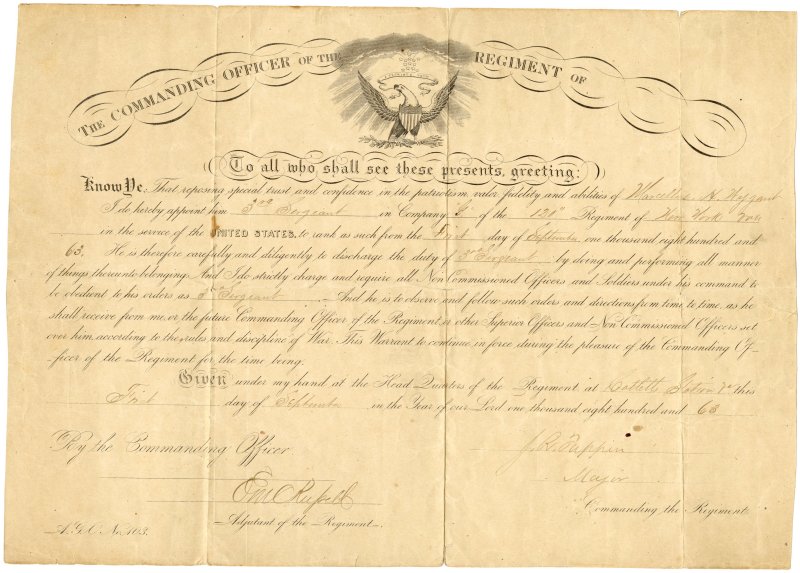 THE COMMANDING OFFICER OF THE REGIMENT OF
To all who shall see these presents, greeting:
Know Ye, That reposing special trust and confidence in the patriotism, valor, fidelity and abilities of Marcellus H.
I do hereby appoint him 3rd Sergeant in Company G of the 120th Regiment of New York Vols
in the service of the UNITED STATES, to rank as such from the First day of September one thousand eight hundred and
63. He is therefore carefully and diligently to discharge the duty of 3rd Sergeant by doing and performing all manner
of things thereunto belonging. And I do strictly charge and require all Non Commissioned Officers and Soldiers under his command to
be obedient to his orders as 3rd Sergeant And he is to observe and follow such orders and directions from time to time, as he
shall receive from me, or the future Commanding Officer of the Regiment or other Superior Officers and Non Commissioned Officers set
over him, according to the rules and discipline of War. This Warrant to continue in force during the pleasure of the Commanding Of-
ficer of the Regiment for the time being.
Given under my hand at the Head Quarters of the Regiment at Va this
First day of September in the Year of our Lord one thousand eight hundred and 63
By the Commanding Officer
J. R. Tappen
Major
Commanding the Regiment.
Adjutant of the Regiment.
A.G.O. No. 103.